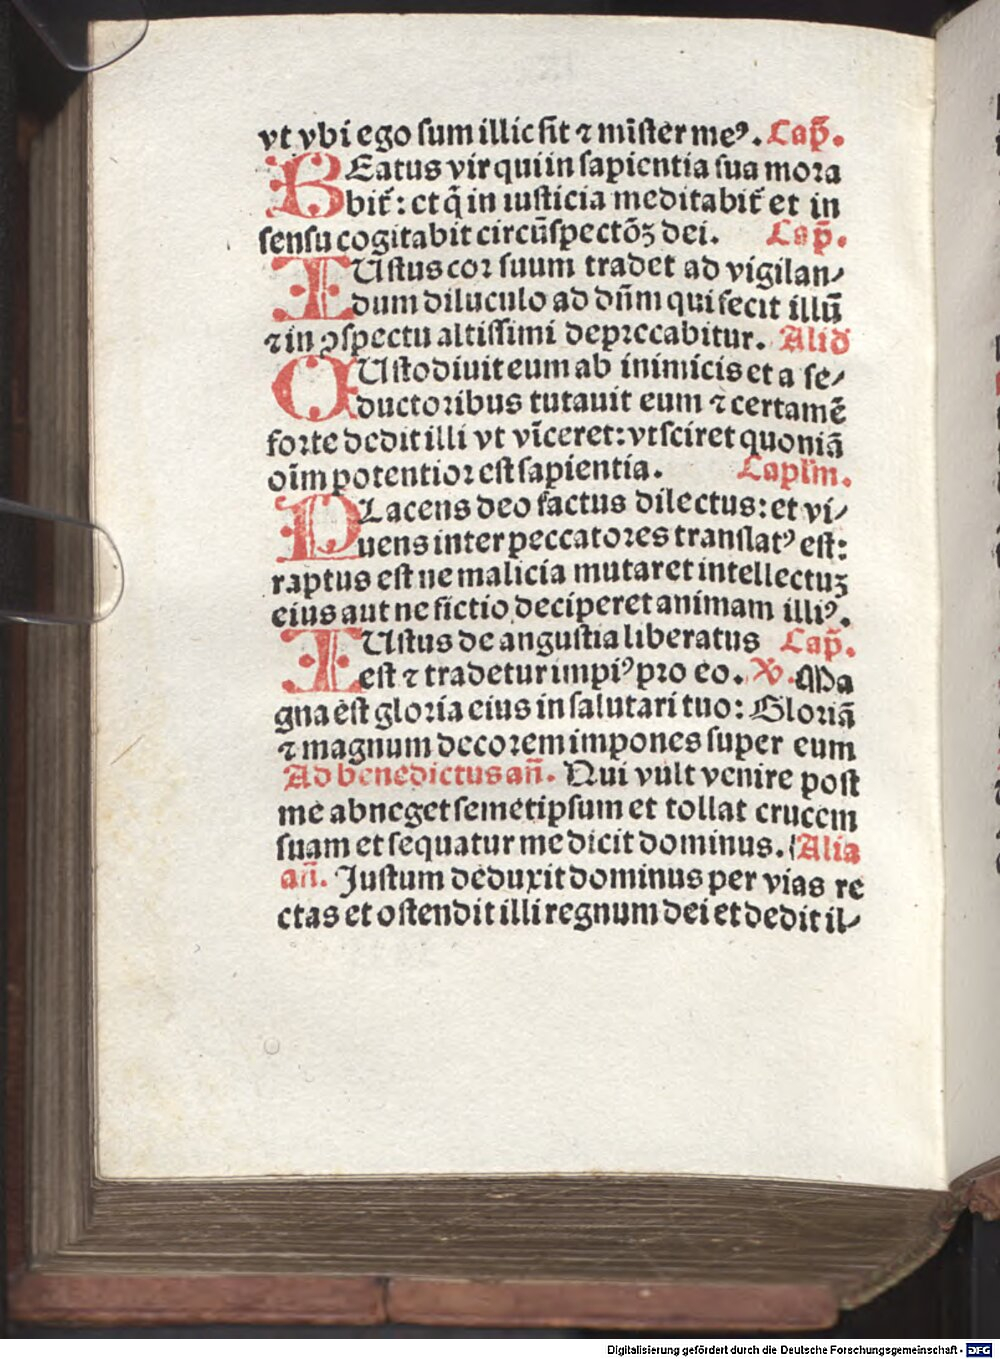 vt vbi ego sum illic sit ⁊ mīster meꝰ. Cap̄.
BEatus vir qui in sapientia sua mora
bit̄: et q̄ in iusticia meditabit̄ et in
sensu cogitabit circūspectōꝫ dei. Cap̄.
IUstus cor suum tradet ad vigilan⸗
dum diluculo ad dn̄m qui fecit illū
⁊ in ꝯspectu altissimi deprecabitur. Aliđ
CUstodiuit eum ab inimicis et a se⸗
ductoribus tutauit eum ⁊ certamē
forte dedit illi vt vīceret: vt sciret quoniā
oīm potentior est sapientia. Capl'm.
PLacens deo factus dilectus: et vi⸗
uens inter peccatores translatꝰ est:
raptus est ne malicia mutaret intellectuꝫ
eius aut ne fictio deciperet animam illiꝰ.
IUstus de angustia liberatus Cap̄.
est ⁊ tradetur impiꝰ pro eo. ℣. Ma
gna est gloria eius in salutari tuo: Gloriā
⁊ magnum decorem impones super eum
Ad benedictus an̄. Qui vult venire post
me abneget semetipsum et tollat crucem
suam et sequatur me dicit dominus. (Alia
an̄. Iustum deduxit dominus per vias re
ctas et ostendit illi regnum dei et dedit il⸗
Digitalisierung gefördert durch die Deutsche Forschungsgemeinschaft - DFG